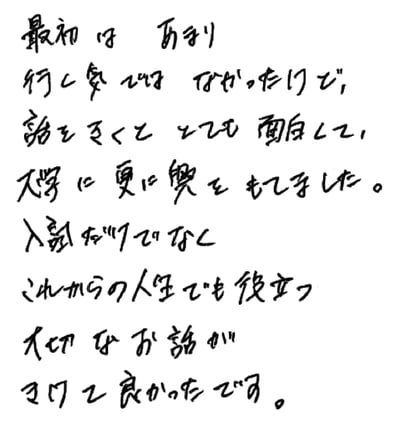 最初は あまり
行く気では なかったけど、
話をきくと とても 面白くて、
大学に更に興をもてました。
入試だけでなく
これからの人生でも役立つ
大切なお話が
きけて良かったです。